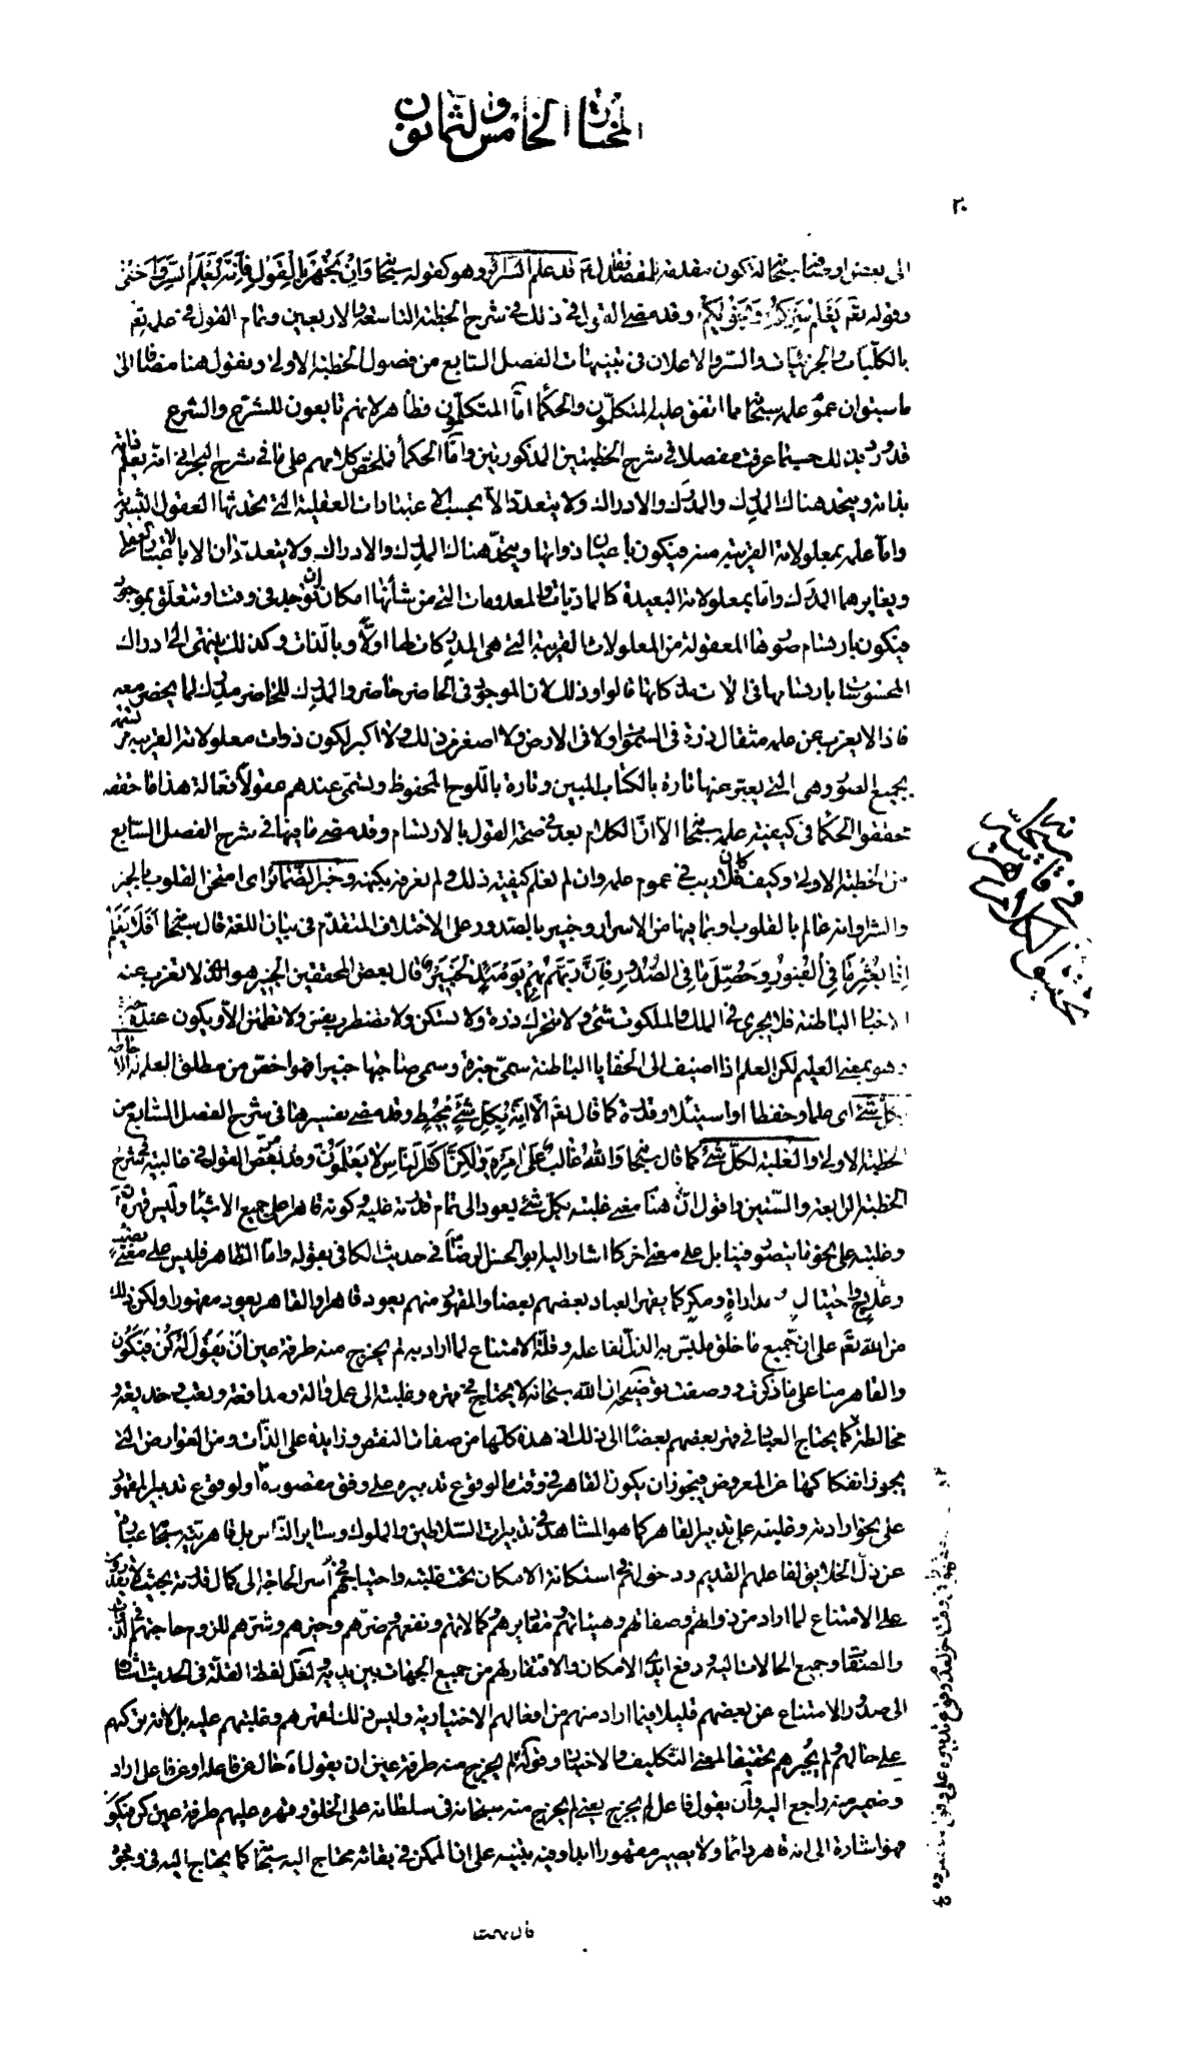 المختار الخامس والثمانون
٢٠
الى بعض اوصافه سبحانه لتكون مقدمة لمقصده فقال قد علم السرائر وهو كقوله سبحانه وَاِنْ تَجْهَرْ بِالْقَوْلِ فَاِنَّهُ يَعْلَمُ السِّرَّ وَاَخْفى
وقوله تعم يَعْلَمُ سِرَّكُمْ وَنَجْوٰيكُمْ وقد مضى القول فى ذلك فى شرح الخطبة التاسعة والاربعين وتمام القول فى علمه تعم
بالكلّيات والجزئيات والسر والاعلان فى تنبيهات الفصل السابع من فصول الخطبة الاولى ونقول هنا مضافا الى
ما سبق ان عموم علمه سبحانه مما اتفق عليه المتكلمون والحكماء امّا المتكلمون فظاهر لانهم تابعون للشرع والشرع
قد ورد بذلك حسبما عرفت مفصلا فى شرح الخطبتين المذكورتين وامّا الحكماء فملخص كلامهم على ما فى شرح البحرانى انه يعلم ذاته
بذاته ويتحد هناك المدرِك والمدرَك والادراك ولا يتعدد الّا بحسب الاعتبارات العقلية التى تحدثها العقول البشرية
وامّا علمه بمعلولاته القريبة منه فيكون باعيان ذواتها ويتحد هناك المدرَك والادراك ولا يتعددان الا بالاعتبار العقلى
ويغايرهما المدرِك وامّا بمعلولاته البعيدة كالماديات والمعدومات التى من شأنها امكان ان توجد فى وقت او تتعلق بموجود
فيكون بارتسام صورها المعقولة من المعلولات القريبة التى هى المدركات لها اولًا وبالذات وكذلك ينتهى الى ادراك
المحسوسات بارتسامها فى الات مدركاتها قالوا وذلك لان الموجود فى الحاضر حاضر والمدرِك للحاضر مدرك لما يحضر معه
فاذا لا يعزب عن علمه مثقال ذرة فى السموات ولا فى الارض ولا اصغر من ذلك ولا اكبر لكون ذوات معلولاته القريبة مرتسمة
بجميع الصور وهى التى يعبّر عنها تارة بالكتاب المبين وتارة باللوح المحفوظ وتسمّى عندهم عقولًا فعّالة هذا ما حققه
محققوا الحكماء فى كيفية علمه سبحانه الّا انّ الكلام بعد فى صحة القول بالارتسام وقد مضى ما فيها فى شرح الفصل السابع
من الخطبة الاولى وكيف كان فلا ريب فى عموم علمه وان لم نعلم كيفية ذلك ولم نعرفه بكنهه وخبر الضمائر اى امتحن القلوب بالخير
والشر او انه عالم بالقلوب او بما فيها من الاسرار وخبير بالصدور على الاختلاف المتقدم فى بيان اللغة قال سبحانه اَفَلا يَعْلَمُ
اِذا بُعْثِرَ ما فِى الْقُبُورِ وَحُصِّلَ ما فِى الصُّدُورِ فَاِنَّ رَبَّهُمْ بِهِمْ يَوْمَئِذٍ لَخَبيرٌ قال بعض المحققين الخبير هو الذى لا تعزب عنه
الاخبار الباطنة فلا يجرى فى الملك والملكوت شئ ولا تتحرك ذرة ولا تسكن ولا تضطرب نفس ولا تطمئن الّا ويكون عنده خبره
وهو بمعنى العليم لكن العلم اذا اضيف الى الخفايا الباطنة سمّى خبرة وسمى صاحبها خبيرا فهو اخص من مطلق العلم له الاحاطة
بكل شئ اى علما وحفظا او استيلاء وقدرة كما قال تعم اَلا اِنَّهُ بِكُلِّ شَىْءٍ مُحيطٌ وقد مضى تفسيرها فى شرح الفصل السابع من
الخطبة الاولى والغلبة لكلّ شئ كما قال سبحانه وَاللّٰهُ غالِبٌ عَلى اَمْرِهِ وَلٰكِنَّ اَكْثَرَ النّاسِ لا يَعْلَمُونَ وقد مضى بعض القول فى غالبيته فى شرح
الخطبة الرابعة والستين واقول انّ هنا معنى غلبته بكل شئ يعود الى تمام قدرته عليه وكونه قاهرا على جميع الاشياء وليس قهره
وغلبته على نحو ما يتصور فينا بل على معنى اخر كما اشار اليه ابو الحسن الرضا فى حديث الكافى بقوله وامّا القاهر فليس على معنى نصب
وعلاج واحتيال ومداراة ومكر كما يقهر العباد بعضهم بعضا والمقهور منهم يعود قاهرا والقاهر يعود مقهورا ولكن ذلك
من اللّه تعم على ان جميع ما خلق ملبّس به الذلّ لفاعله وقلة الامتناع لما اراد به لم يخرج منه طرفة عين انْ يَقُولَ لَهُ كُنْ فَيَكُونُ
والقاهر منا على ما ذكرت ووصفت توضيحه ان اللّه سبحانه لا يحتاج فى قهره وغلبته الى عمل وآلة ومدافعة وتعب وخديعة و
مخالطة كما يحتاج العباد فى قهر بعضهم بعضًا الى ذلك لان هذه كلها من صفات النقص وزايدة على الذات ومن العوارض التى
يجوز انفكاكها عن المعروض فيجوز ان يكون القاهر فى وقت ما لوقوع تدبيره على وفق مقصوره او لوقوع تدبير المقهور
على نحو ارادته وغلبته على تدبير القاهر كما هو المشاهد فى تدبيرات السلاطين والملوك وساير النّاس بل قاهريته سبحانه عبارة
عن ذلّ الخلائق لفاعلهم القديم ودخولهم فى استكانة الامكان تحت غلبته واحتياجهم فى اسر الحاجة الى كمال قدرته بحيث لا يقدرون
على الامتناع لما اراد من ذواتهم وصفاتهم وهيئاتهم ومقاديرهم وكمالاتهم ونفعهم وضرّهم وخيرهم وشرّهم للزوم حاجتهم فى الذات
والصفات وجميع الحالات اليه ورفع ايدى الامكان والافتقار لهم من جميع الجهات بين يديه ولعل لفظ القلة فى الحديث اشارة
الى صدور الامتناع عن بعضهم قليلا فيما اراد منهم من افعالهم الاختيارية وليس ذلك لقهرهم وغلبتهم عليه بل لانه تركهم
على حالهم ولم يجبرهم تحقيقا لمعنى التكليف والاختيار وقوله لم يخرج منه طرفة عين ان يقول له حال عن فاعله او عن فاعل اراد
وضمير منه راجع اليه وأن يقول فاعل لم يخرج يعنى لم يخرج منه سبحانه فى سلطانه على الخلق وقهره عليهم طرفة عين كن فيكون
فهو اشارة الى انه قاهر دائما ولا يصير مقهورا ابدا وفيه تنبيه على ان الممكن فى بقائه محتاج اليه سبحانه كما يحتاج اليه فى وجوده
تحقيق الكلام فى قاهريته سبحانه